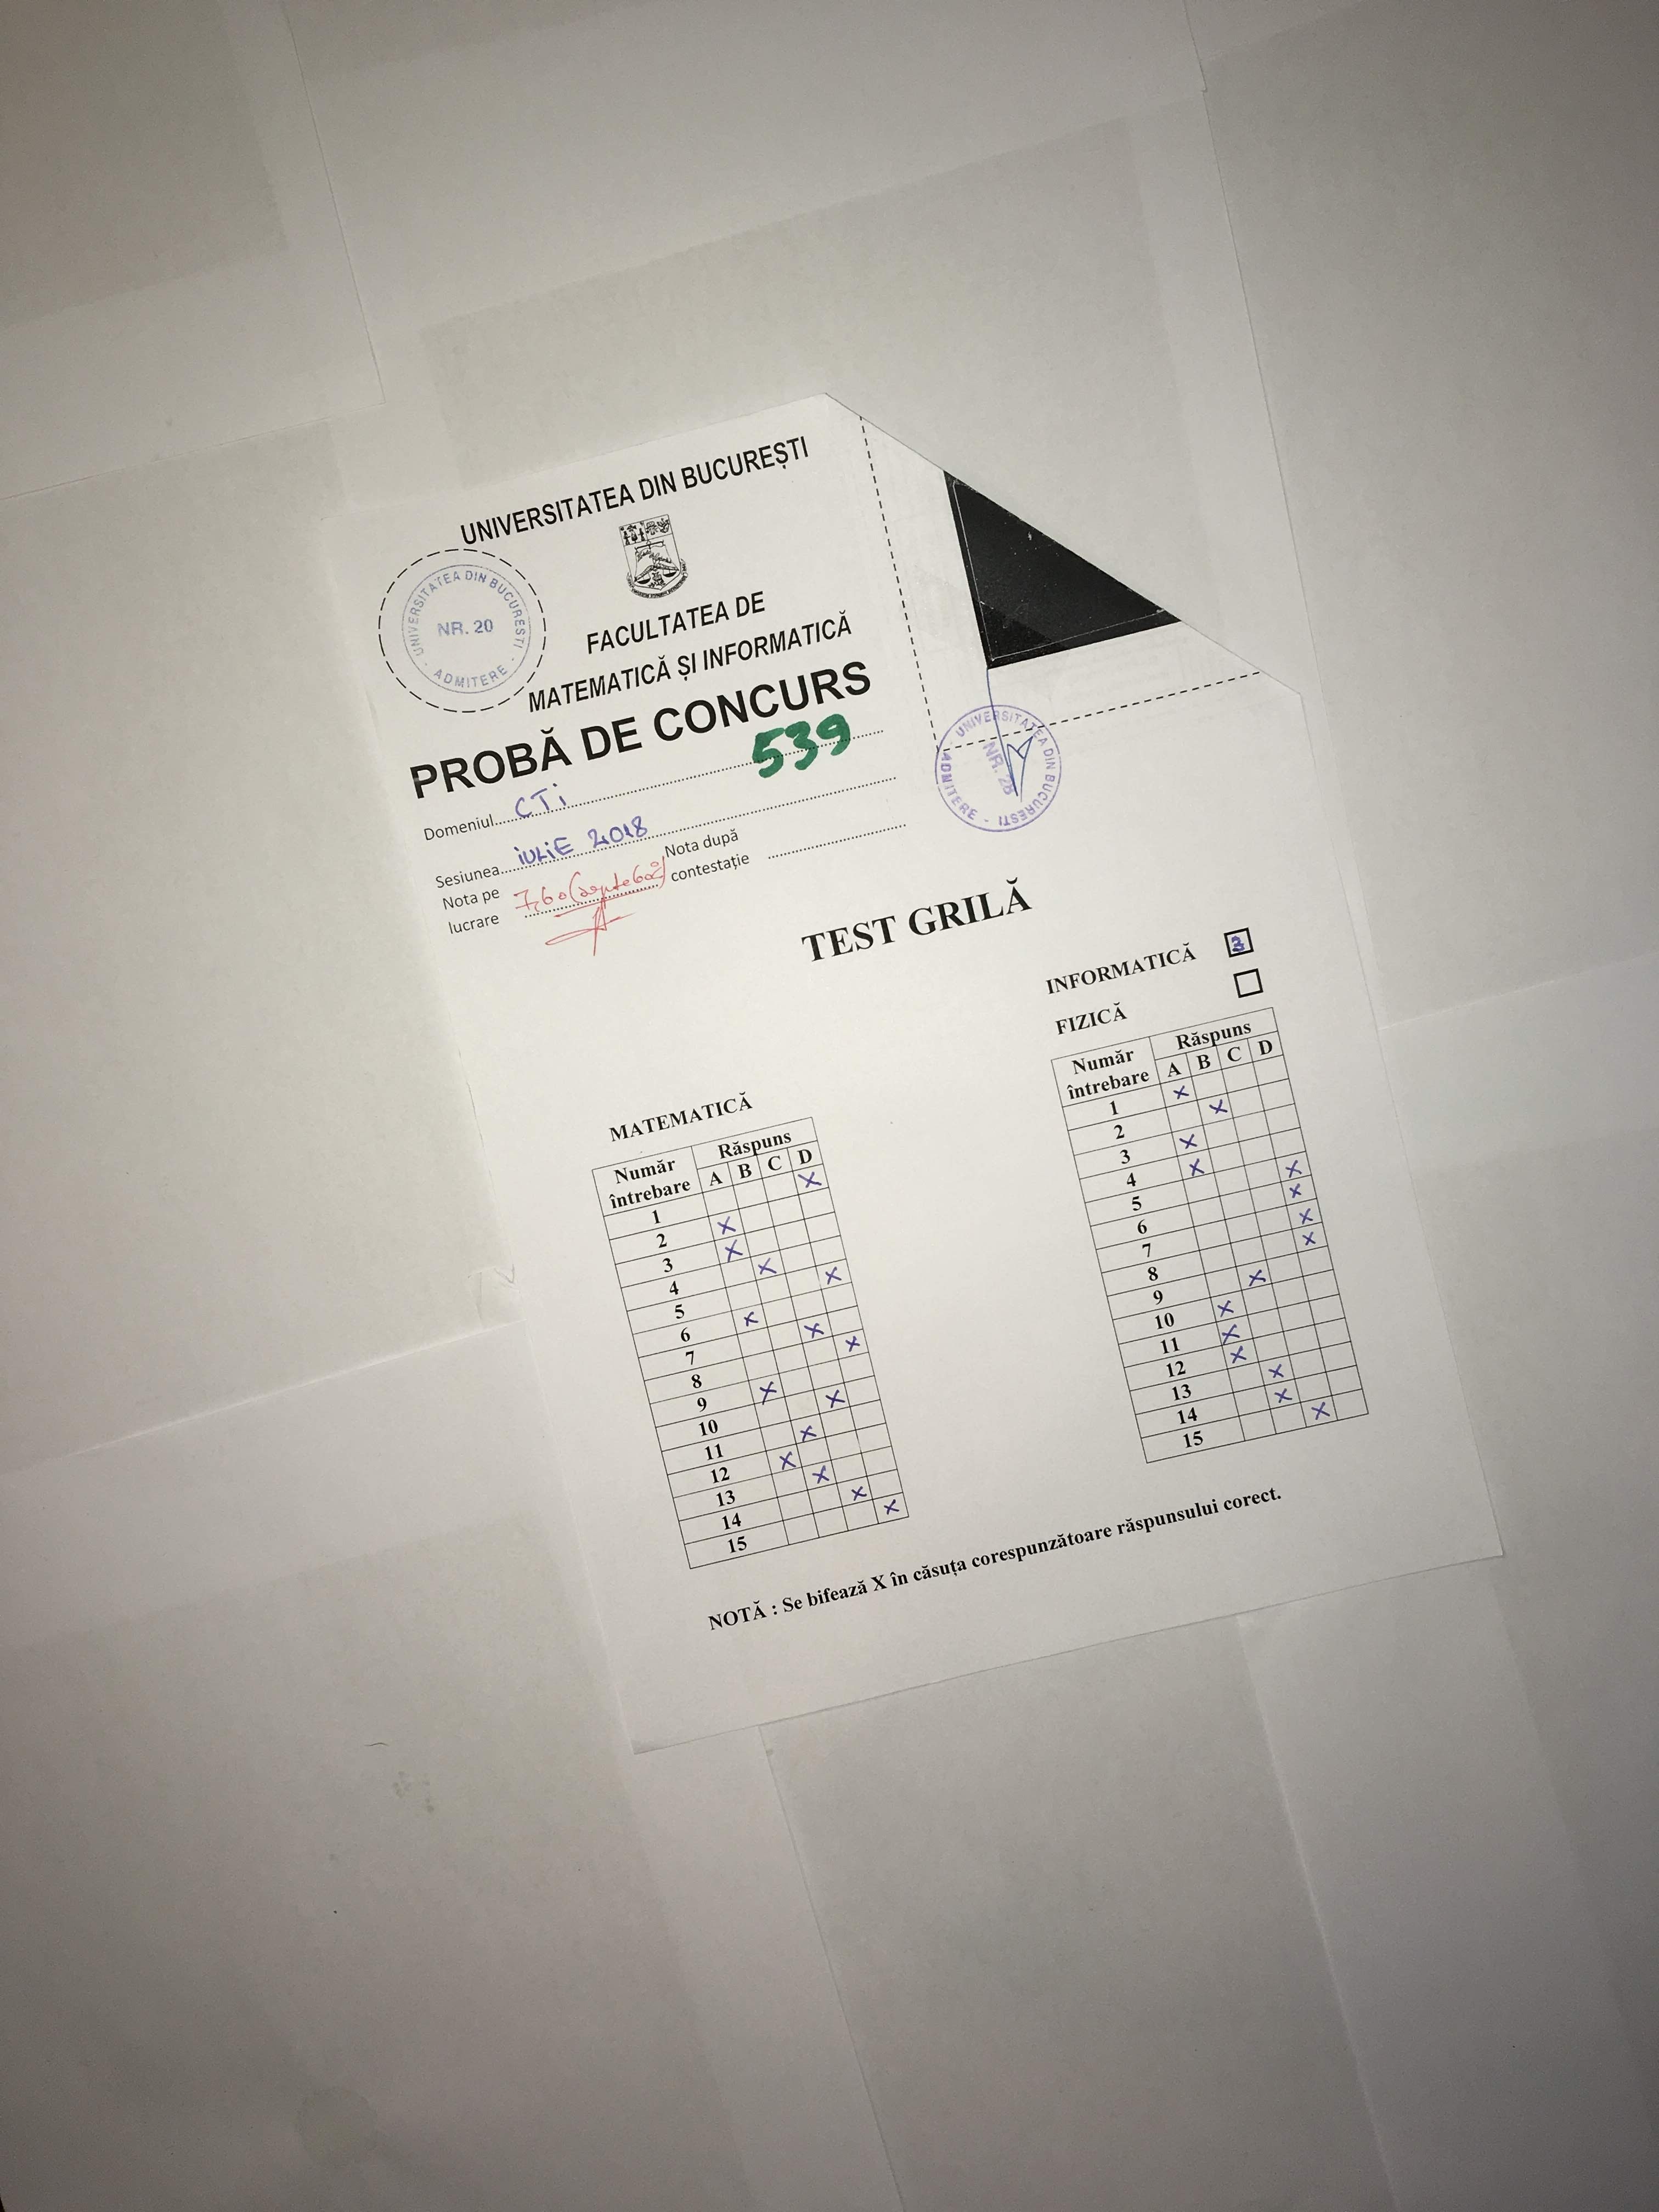 UNIVERSITATEA DIN BUCUREȘTI
UNIVERSITATEA DIN BUCURESTI
NR. 20
- ADMITERE -
FACULTATEA DE
MATEMATICĂ ȘI INFORMATICĂ
PROBĂ DE CONCURS
539
Domeniul CTi
Sesiunea iULiE 2018
Nota pe lucrare 7,60
Nota după contestație
UNIVERSITATEA DIN BUCURESTI
NR. 28
ADMITERE -
TEST GRILĂ
MATEMATICĂ
Număr întrebare Răspuns
A B C D
1 X
2 X
3 X
4 X
5 X
6 X
7 X
8 X
9 X
10 X
11 X
12 X
13 X
14 X
15 X
INFORMATICĂ
FIZICĂ
Număr întrebare Răspuns
A B C D
1 X
2 X
3 X
4 X
5 X
6 X
7 X
8 X
9 X
10 X
11 X
12 X
13 X
14 X
15 X
NOTĂ : Se bifează X în căsuța corespunzătoare răspunsului corect.